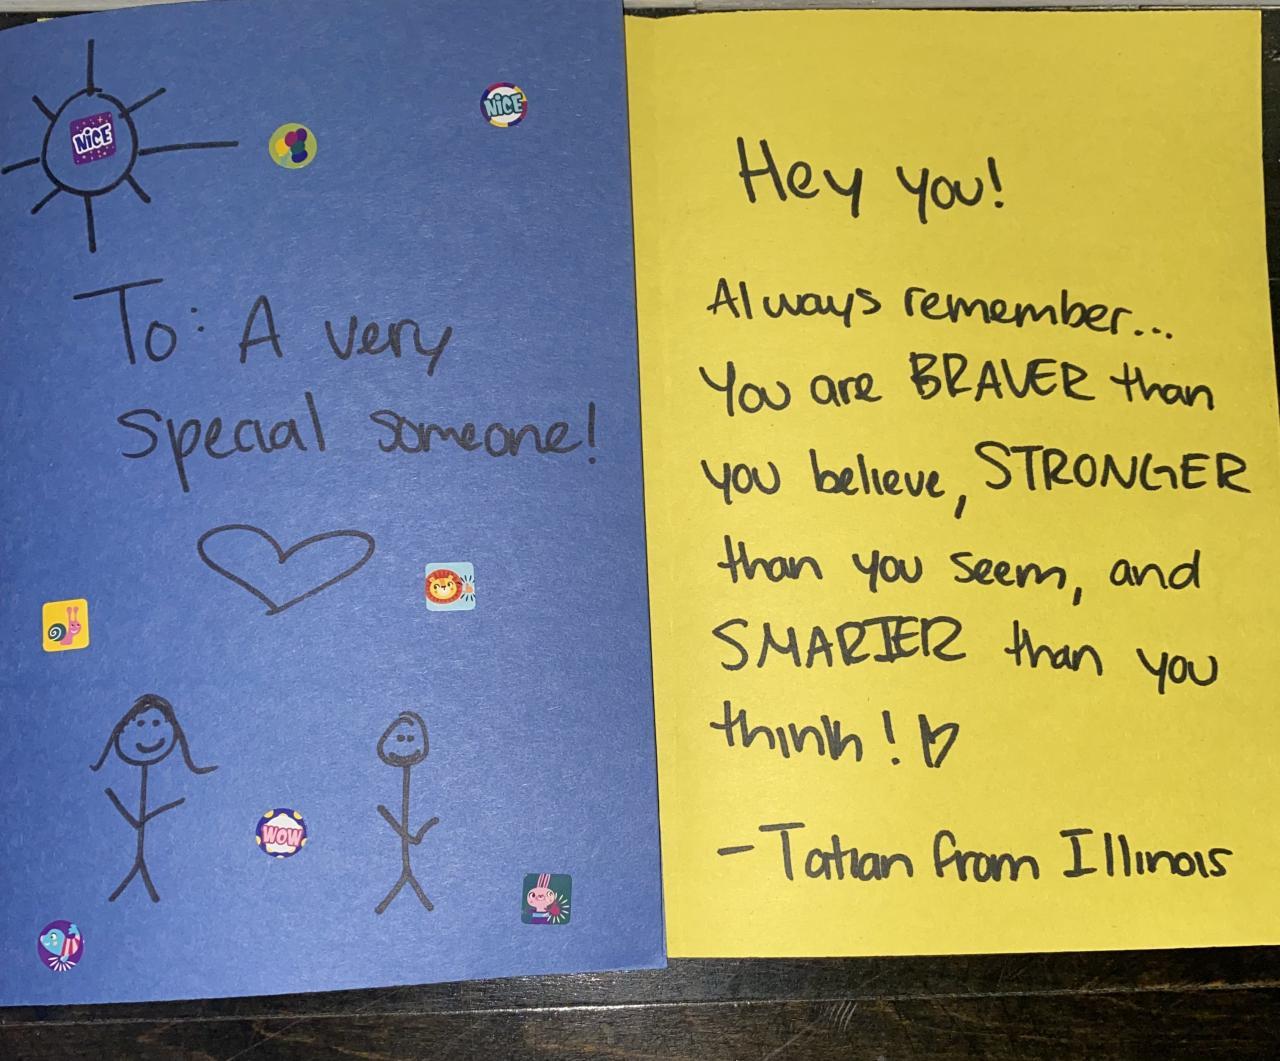 NICE
NICE
To: A very
special someone!
WOW
Hey you!
Always remember...
You are BRAVER than
you believe, STRONGER
than you seem, and
SMARTER than you
think!
-Tatian from Illinois